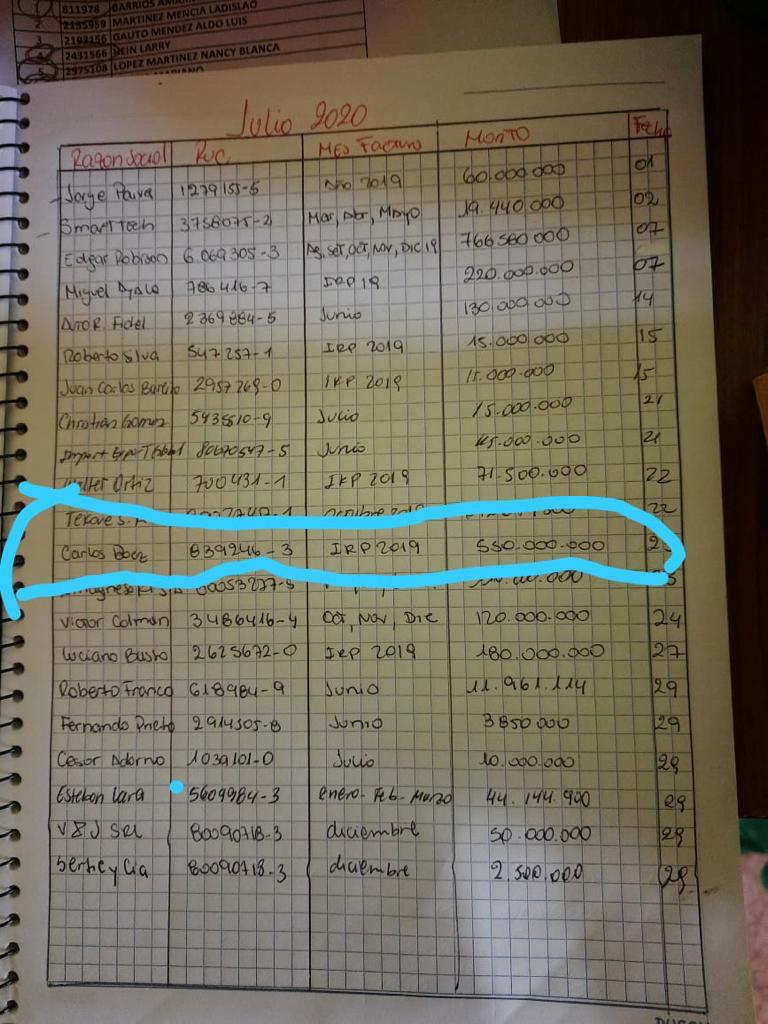 811978 BARRIOS
2135959 MARTINEZ MENCIA LADISLAO
3 2193156 GAUTO MENDEZ ALDO LUIS
4 2431566 HEIN LARRY
5 2975108 LOPEZ MARTINEZ NANCY BLANCA
Julio 2020
Razon Social RUC Mes Factura MONTO Fecha
Jorge Paiva 1279155-5 2019 60.000.000 01
Smart tech 3758075-2 Mar, Abr, Mayo 19.440.000 02
Edgar Robison 6.069305-3 Ag, set, oct, Nov, Dic 19 766560000 07
Miguel Ayala 786416-7 IRP 19 220.000.000 07
Fidel 2369884-5 Junio 130.000.000 14
Roberto Silva 547257-1 IRP 2019 15.000.000 15
Juan Carlos 2957269-0 IRP 2019 11.000.000 15
Christian Gomez 5435510-9 Julio 15.000.000 21
Junio 45.000.000 21
Walter Ortiz 700431-1 IRP 2019 71.500.000 22
22
Carlos Baez 839246-3 IRP 2019 550.000.000
Victor Colman 3486416-4 Oct, Nov, Dic 120.000.000 24
Luciano Busto 2625672-0 IRP 2019 180.000.000 27
Roberto Franco 618984-9 Junio 11.961.114 29
Fernando Prieto 2914505-8 Junio 3850000 29
Cesar Adorno 1039101-0 Julio 10.000.000 29
Esteban Lara 5609984-3 enero-Feb-Marzo 44.144.900 29
V&J SRL 80090718-3 diciembre 50.000.000 29
y Cia 80090718-3 diciembre 2.500.000 29